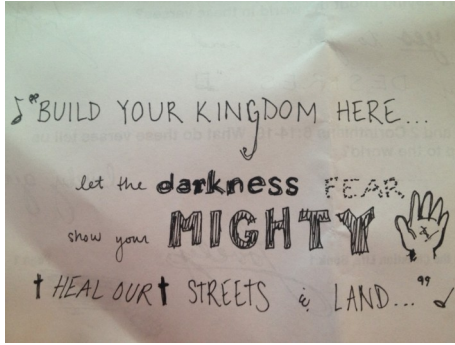 ♪ "BUILD YOUR KINGDOM HERE...
let the darkness FEAR
show your MIGHTY
✝ HEAL OUR ✝ STREETS & LAND..." ♪